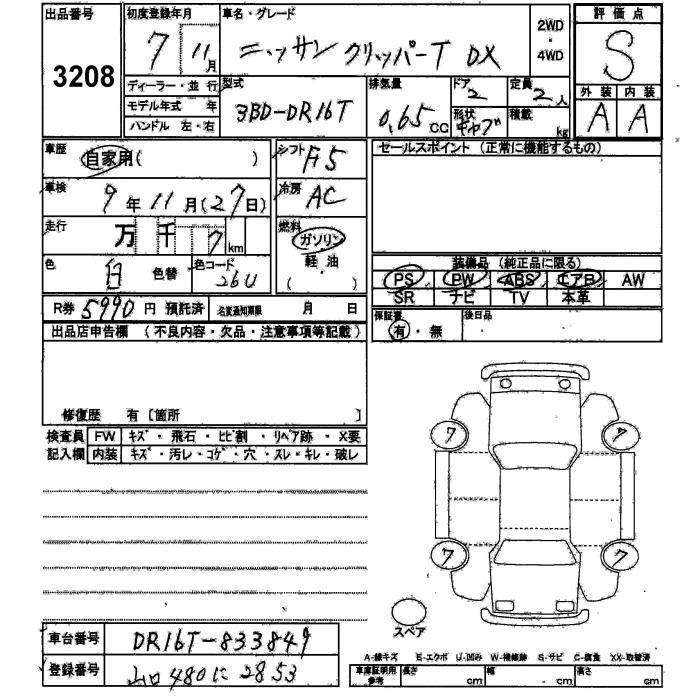 出品番号 初度登録年月 車名・グレード 評価点
3208 7 11月 ニッサン クリッパーT DX 2WD・4WD S
ディーラー・並行 型式 排気量 ドア 定員 外装 内装
モデル年式 年 3BD-DR16T 0.65cc 2 2人 A A
ハンドル 左・右 形状 キャブ 積載 kg
車歴 自家用( ) シフト F5 セールスポイント (正常に機能するもの)
車検 9年11月(27日) 冷房 AC
走行 万 千 7km 燃料 ガソリン
軽油
( )
色 白 色替 色コード 26U
装備品 (純正品に限る)
PS PW ABS エアB AW
SR ナビ TV 本革
R券 5990円 預託済 名変通知期限 月 日
保証書 有・無 後日品
出品店申告欄 (不良内容・欠品・注意事項等記載)
修復歴 有 [箇所 ]
検査員 FW キズ・飛石・ヒビ割・リペア跡・X要
記入欄 内装 キズ・汚レ・コゲ・穴・スレ・キレ・破レ
7 7
7 7
スペア
車台番号 DR16T-833849
登録番号 山口480に2853
A-線キズ E-エクボ U-凹み W-補修跡 S-サビ C-腐食 XX-取替済
車庫証明用参考 長さ cm 幅 cm 高さ cm